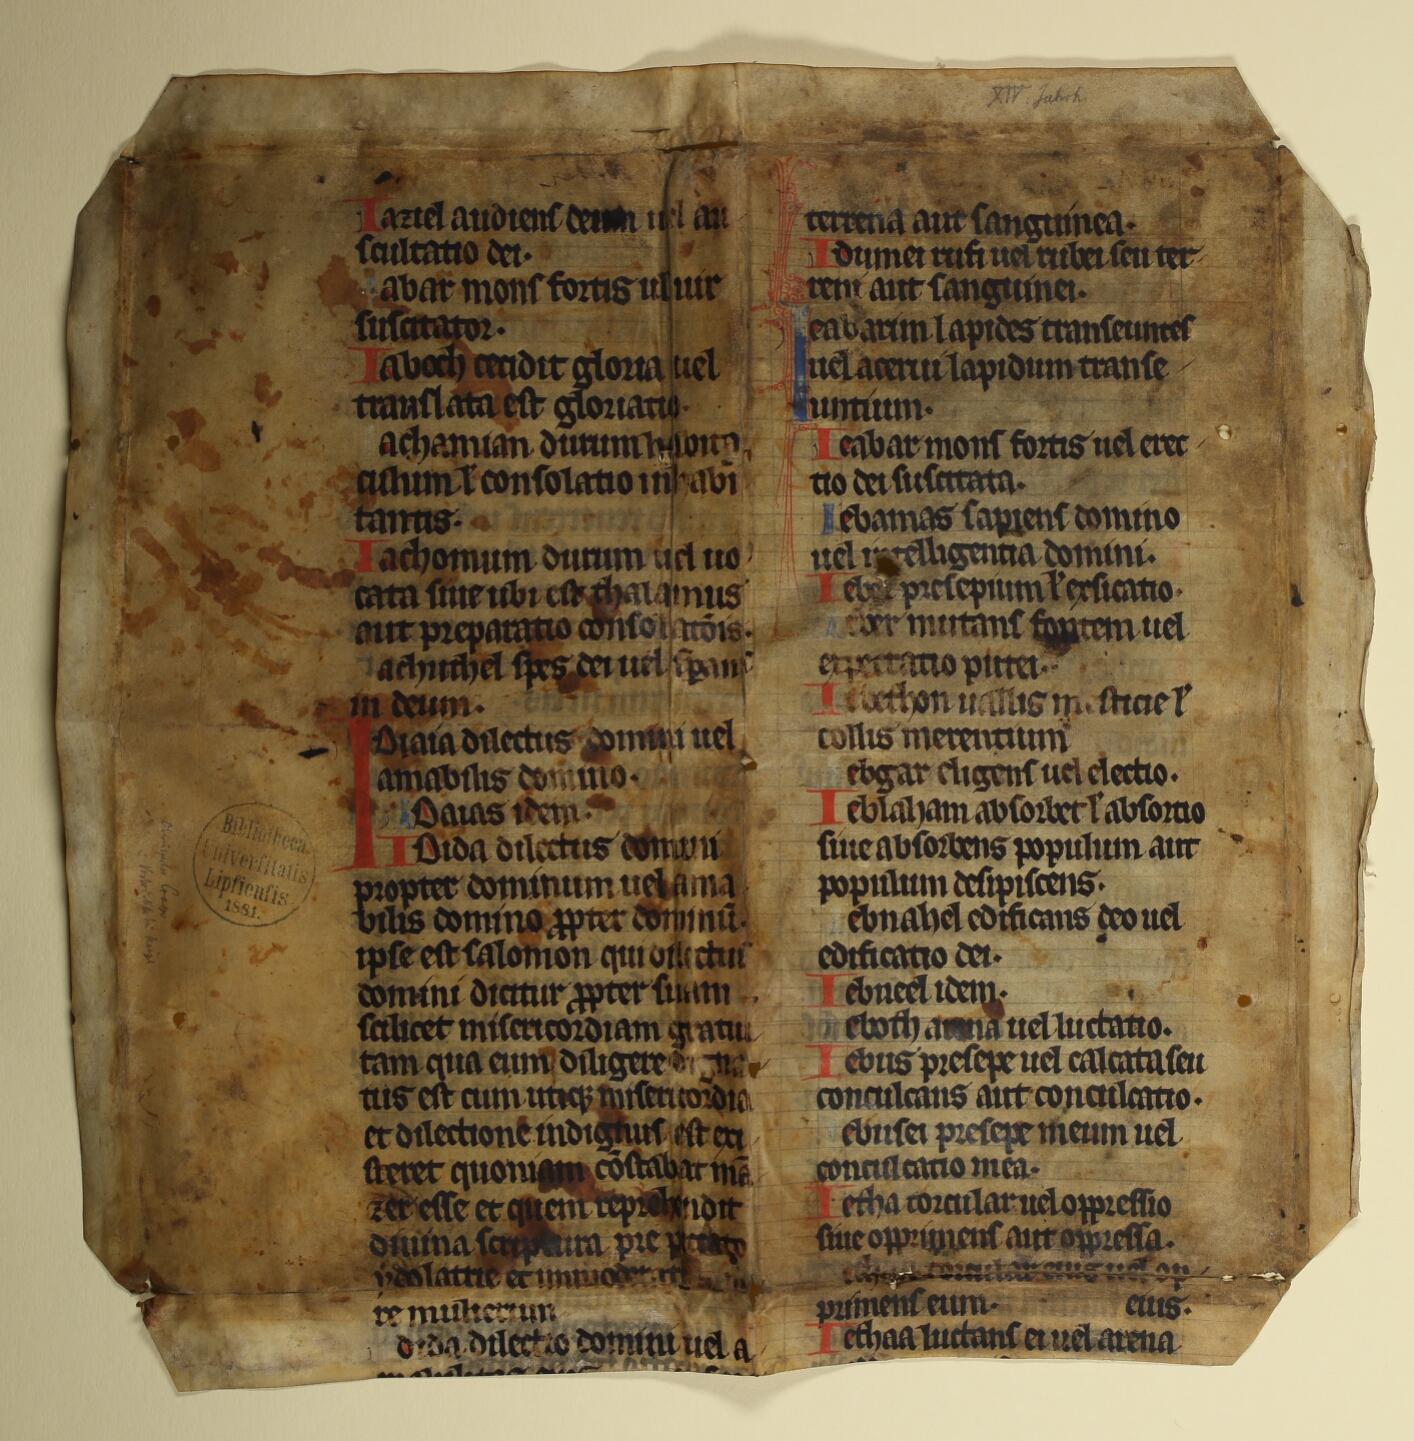 XIV. Jahrh.
Iaziel audiens deum uel au
scultatio dei.
abar mons fortis ul uir
suscitator.
Iaboch cecidit gloria uel
translata est gloriatio.
achamian durum
culum ł consolatio inhabi
tantis.
Iachomum durum uel uo
cata siue ubi est thalamus
aut preparatio consolatōis.
achichel spes dei uel
in deum.
Idiaia dilectus domini uel
amabilis domino.
Idaias idem.
Idida dilectus domini
propter dominum uel ama
bilis domino ꝓpter dominū.
ipse est salomon qui dilectus
domini dicitur ꝓpter suam
scilicet misericordiam gratui
tam qua eum diligere digna
tus est cum utiqꝫ misericordia
et dilectione indignus est exi
steret quoniam cōstabat
esse et quem reprehendit
diuina scriptura pre
ydolatrie et
re mulierum
dida dilectio domini uel a
terrena aut sanguinea.
Idumei rufi uel rubei seu ter
reni aut sanguinei.
Ieabarim lapides transeuntes
uel acerui lapidum transe
untium.
Ieabar mons fortis uel erec
tio dei suscitata.
Iebamas sapiens domino
uel intelligentia domini.
presepium ł exsicatio.
mutans fontem uel
expectatio putei.
uallis ł
collis merentium
ebgar eligens uel electio.
Ieblaham absorbet ł absortio
siue absorbens populum aut
populum desipiscens.
ebnahel edificans deo uel
edificatio dei.
Iebneel idem.
eboth arena uel luctatio.
Iebus presepe uel calcata seu
conculcans aut conculcatio.
ebusei presepe meum uel
conculcatio mea.
Ietha torcular uel oppressio
siue opprimens aut oppressa.
torcular eius uel op
primens eum. eius.
Iethaa luctans ei uel arena
Bibliotheca
Universitatis
Lipsiensis
1881.